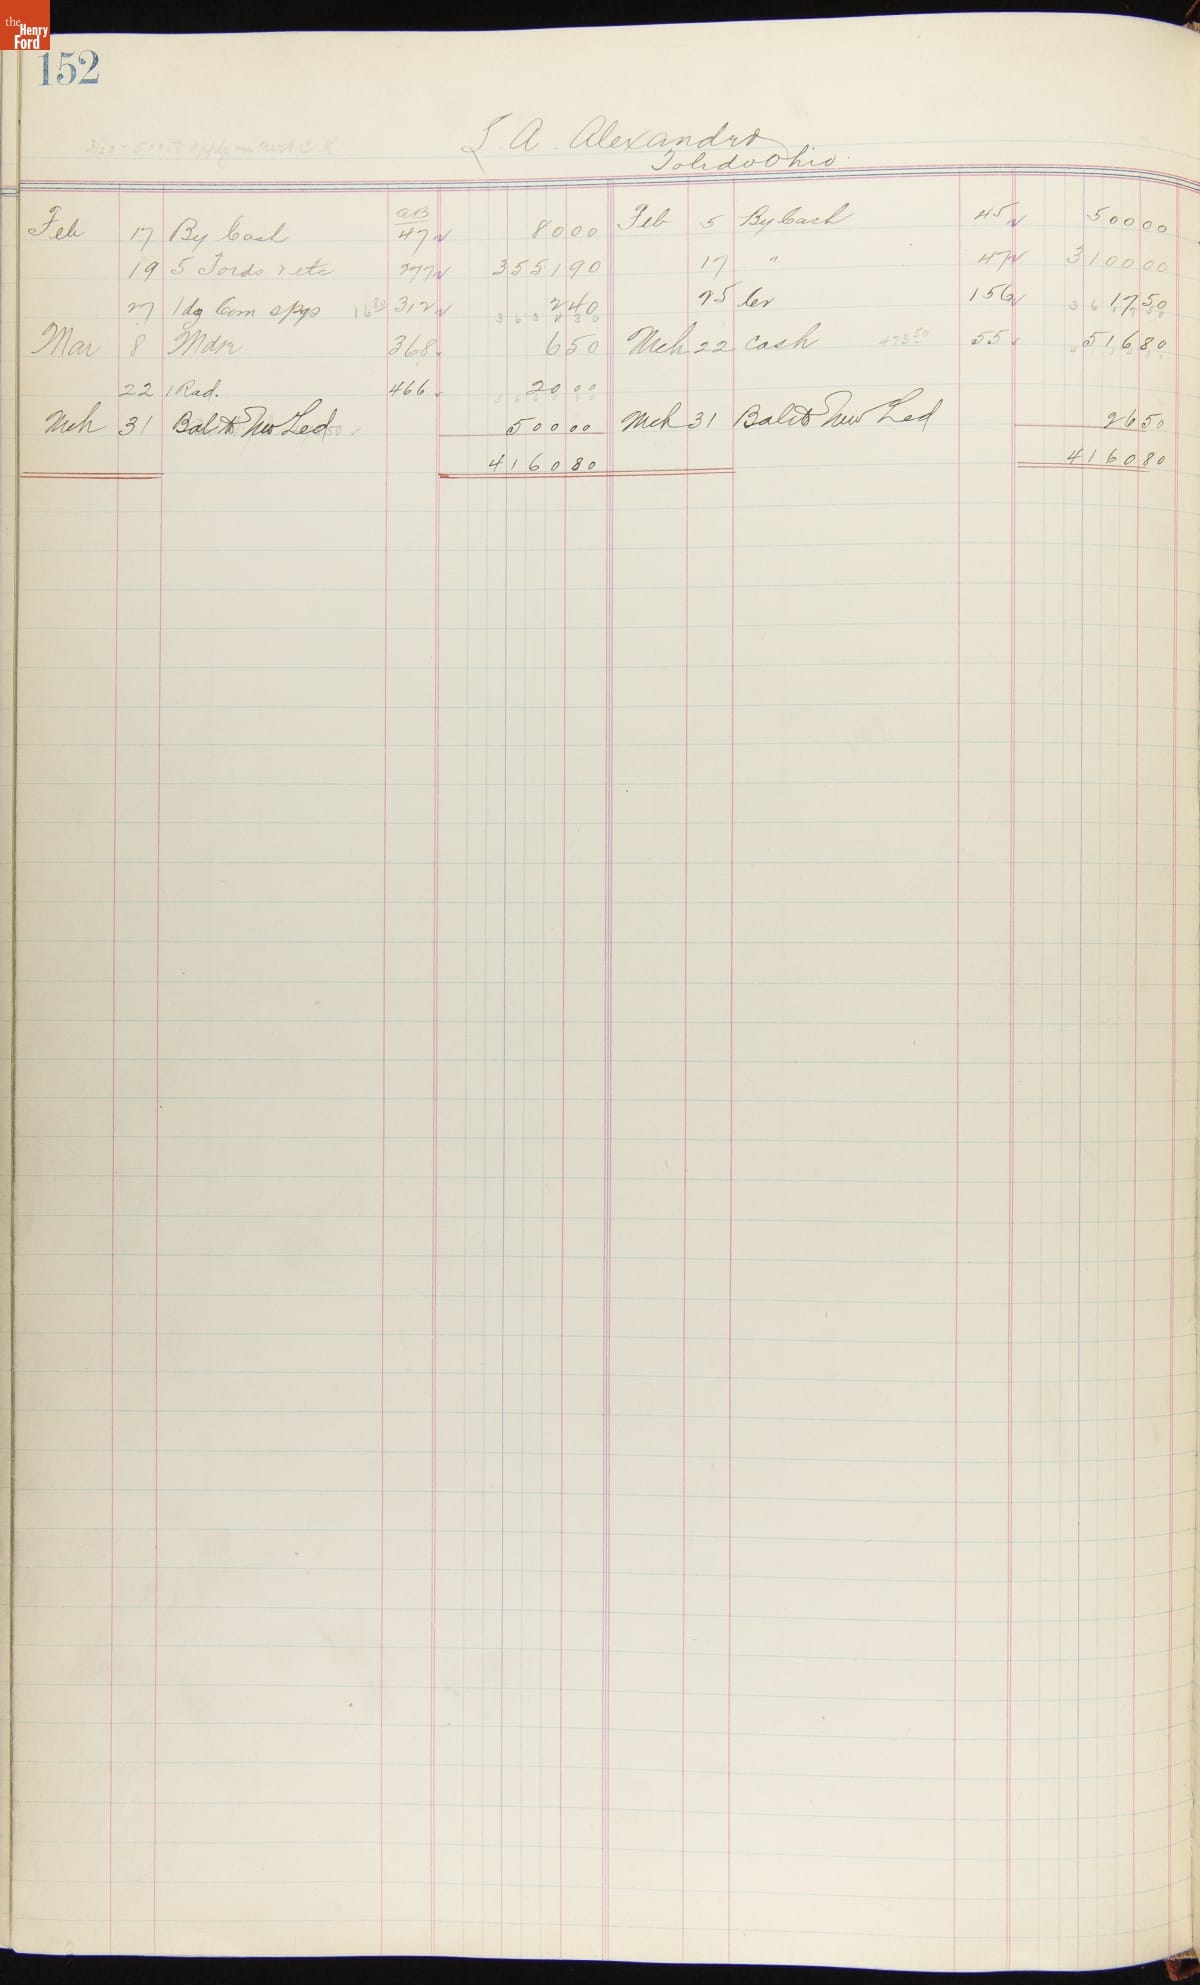 the Henry Ford
152
L. A. Alexander
Toledo Ohio
3/20 - 500 00 to apply on next C
Feb 17 By Cash CB 47 80 00
19 5 Fords & etc 277 3551 90
27 1 dg Com spgs 16 80 312 2 40
3634 30
Mar 8 Mdse 368 6 50
22 1 Rad. 466 20 00
Mch 31 Bal to New Led 500 00
4160 80
Feb 5 By Cash 45 500 00
17 " 47 3100 00
25 Cr 156 17 50
3617 50
Mch 22 Cash 473 50 55 516 80
Mch 31 Bal to New Led 26 50
4160 80